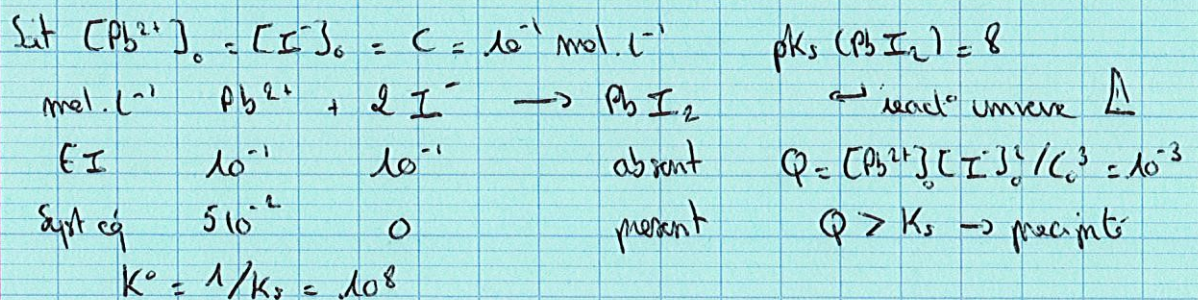 Soit [Pb²⁺]₀ = [I⁻]₀ = C = 10⁻¹ mol.L⁻¹ pKs (PbI₂) = 8
mol.L⁻¹ Pb²⁺ + 2 I⁻ → PbI₂ ↩ react° inverse ⚠
EI 10⁻¹ 10⁻¹ absent Q = [Pb²⁺]₀[I⁻]₀²/C₀³ = 10⁻³
Syst éq 5 10⁻² 0 présent Q > Ks → précipité
K° = 1/Ks = 10⁸